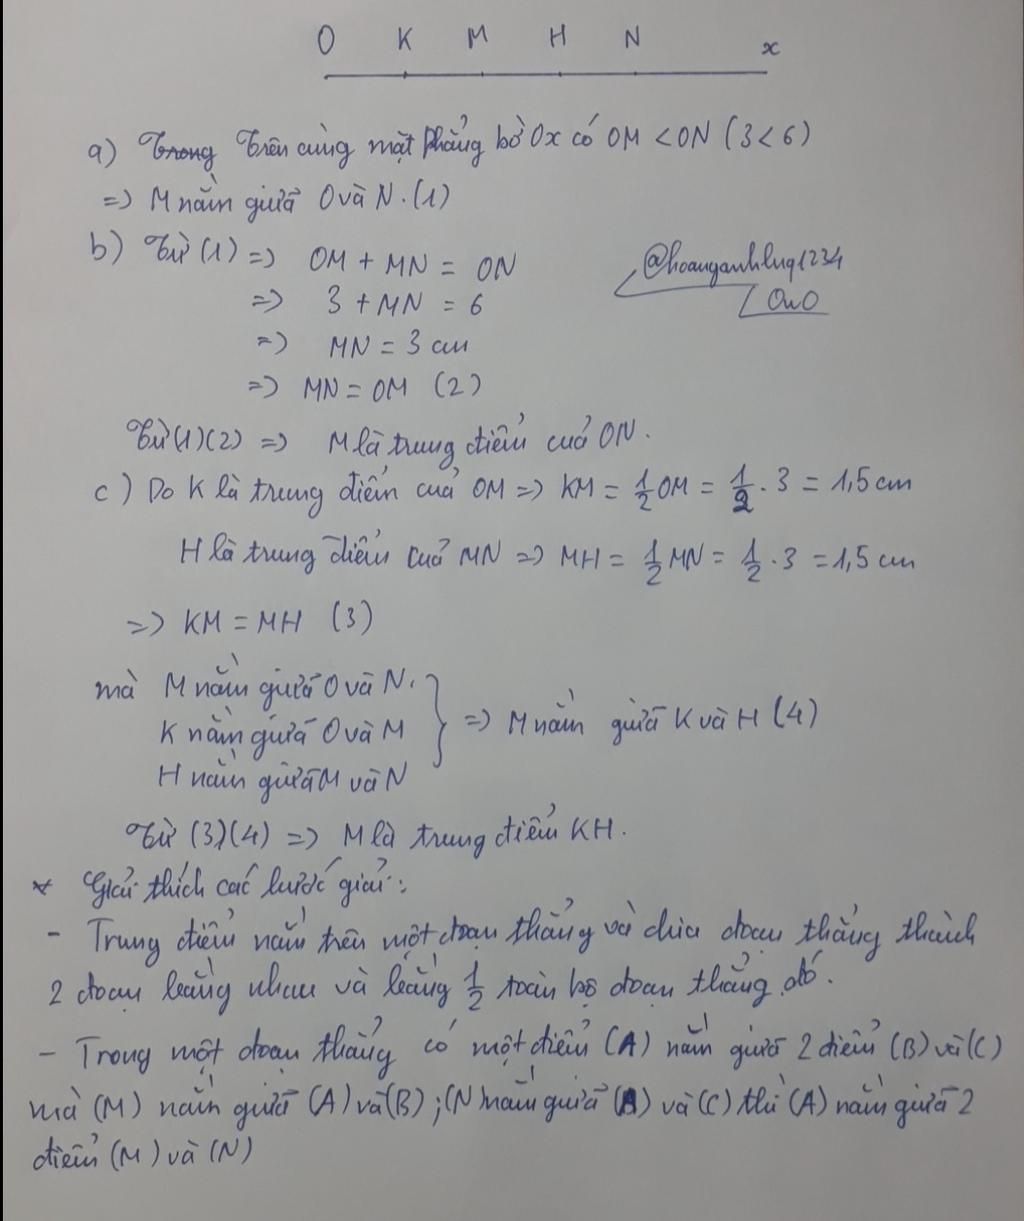 O K M H N x
a) Trong Trên cùng mặt phẳng bờ Ox có OM < ON (3 < 6)
=> M nằm giữa O và N. (1)
b) Từ (1) => OM + MN = ON
@hoanganhlug1234
=> 3 + MN = 6
OwO
=> MN = 3 cm
=> MN = OM (2)
Từ (1)(2) => M là trung điểm của ON.
c) Do K là trung điểm của OM => KM = 1/2 OM = 1/2 . 3 = 1,5 cm
H là trung điểm của MN => MH = 1/2 MN = 1/2 . 3 = 1,5 cm
=> KM = MH (3)
mà M nằm giữa O và N.
K nằm giữa O và M } => M nằm giữa K và H (4)
H nằm giữa M và N
Từ (3)(4) => M là trung điểm KH.
* Giải thích các bước giải:
- Trung điểm nằm trên một đoạn thẳng và chia đoạn thẳng thành
2 đoạn bằng nhau và bằng 1/2 toàn bộ đoạn thẳng đó.
- Trong một đoạn thẳng có một điểm (A) nằm giữa 2 điểm (B) và (C)
mà (M) nằm giữa (A) và (B) ; (N) nằm giữa (A) và (C) thì (A) nằm giữa 2
điểm (M) và (N)